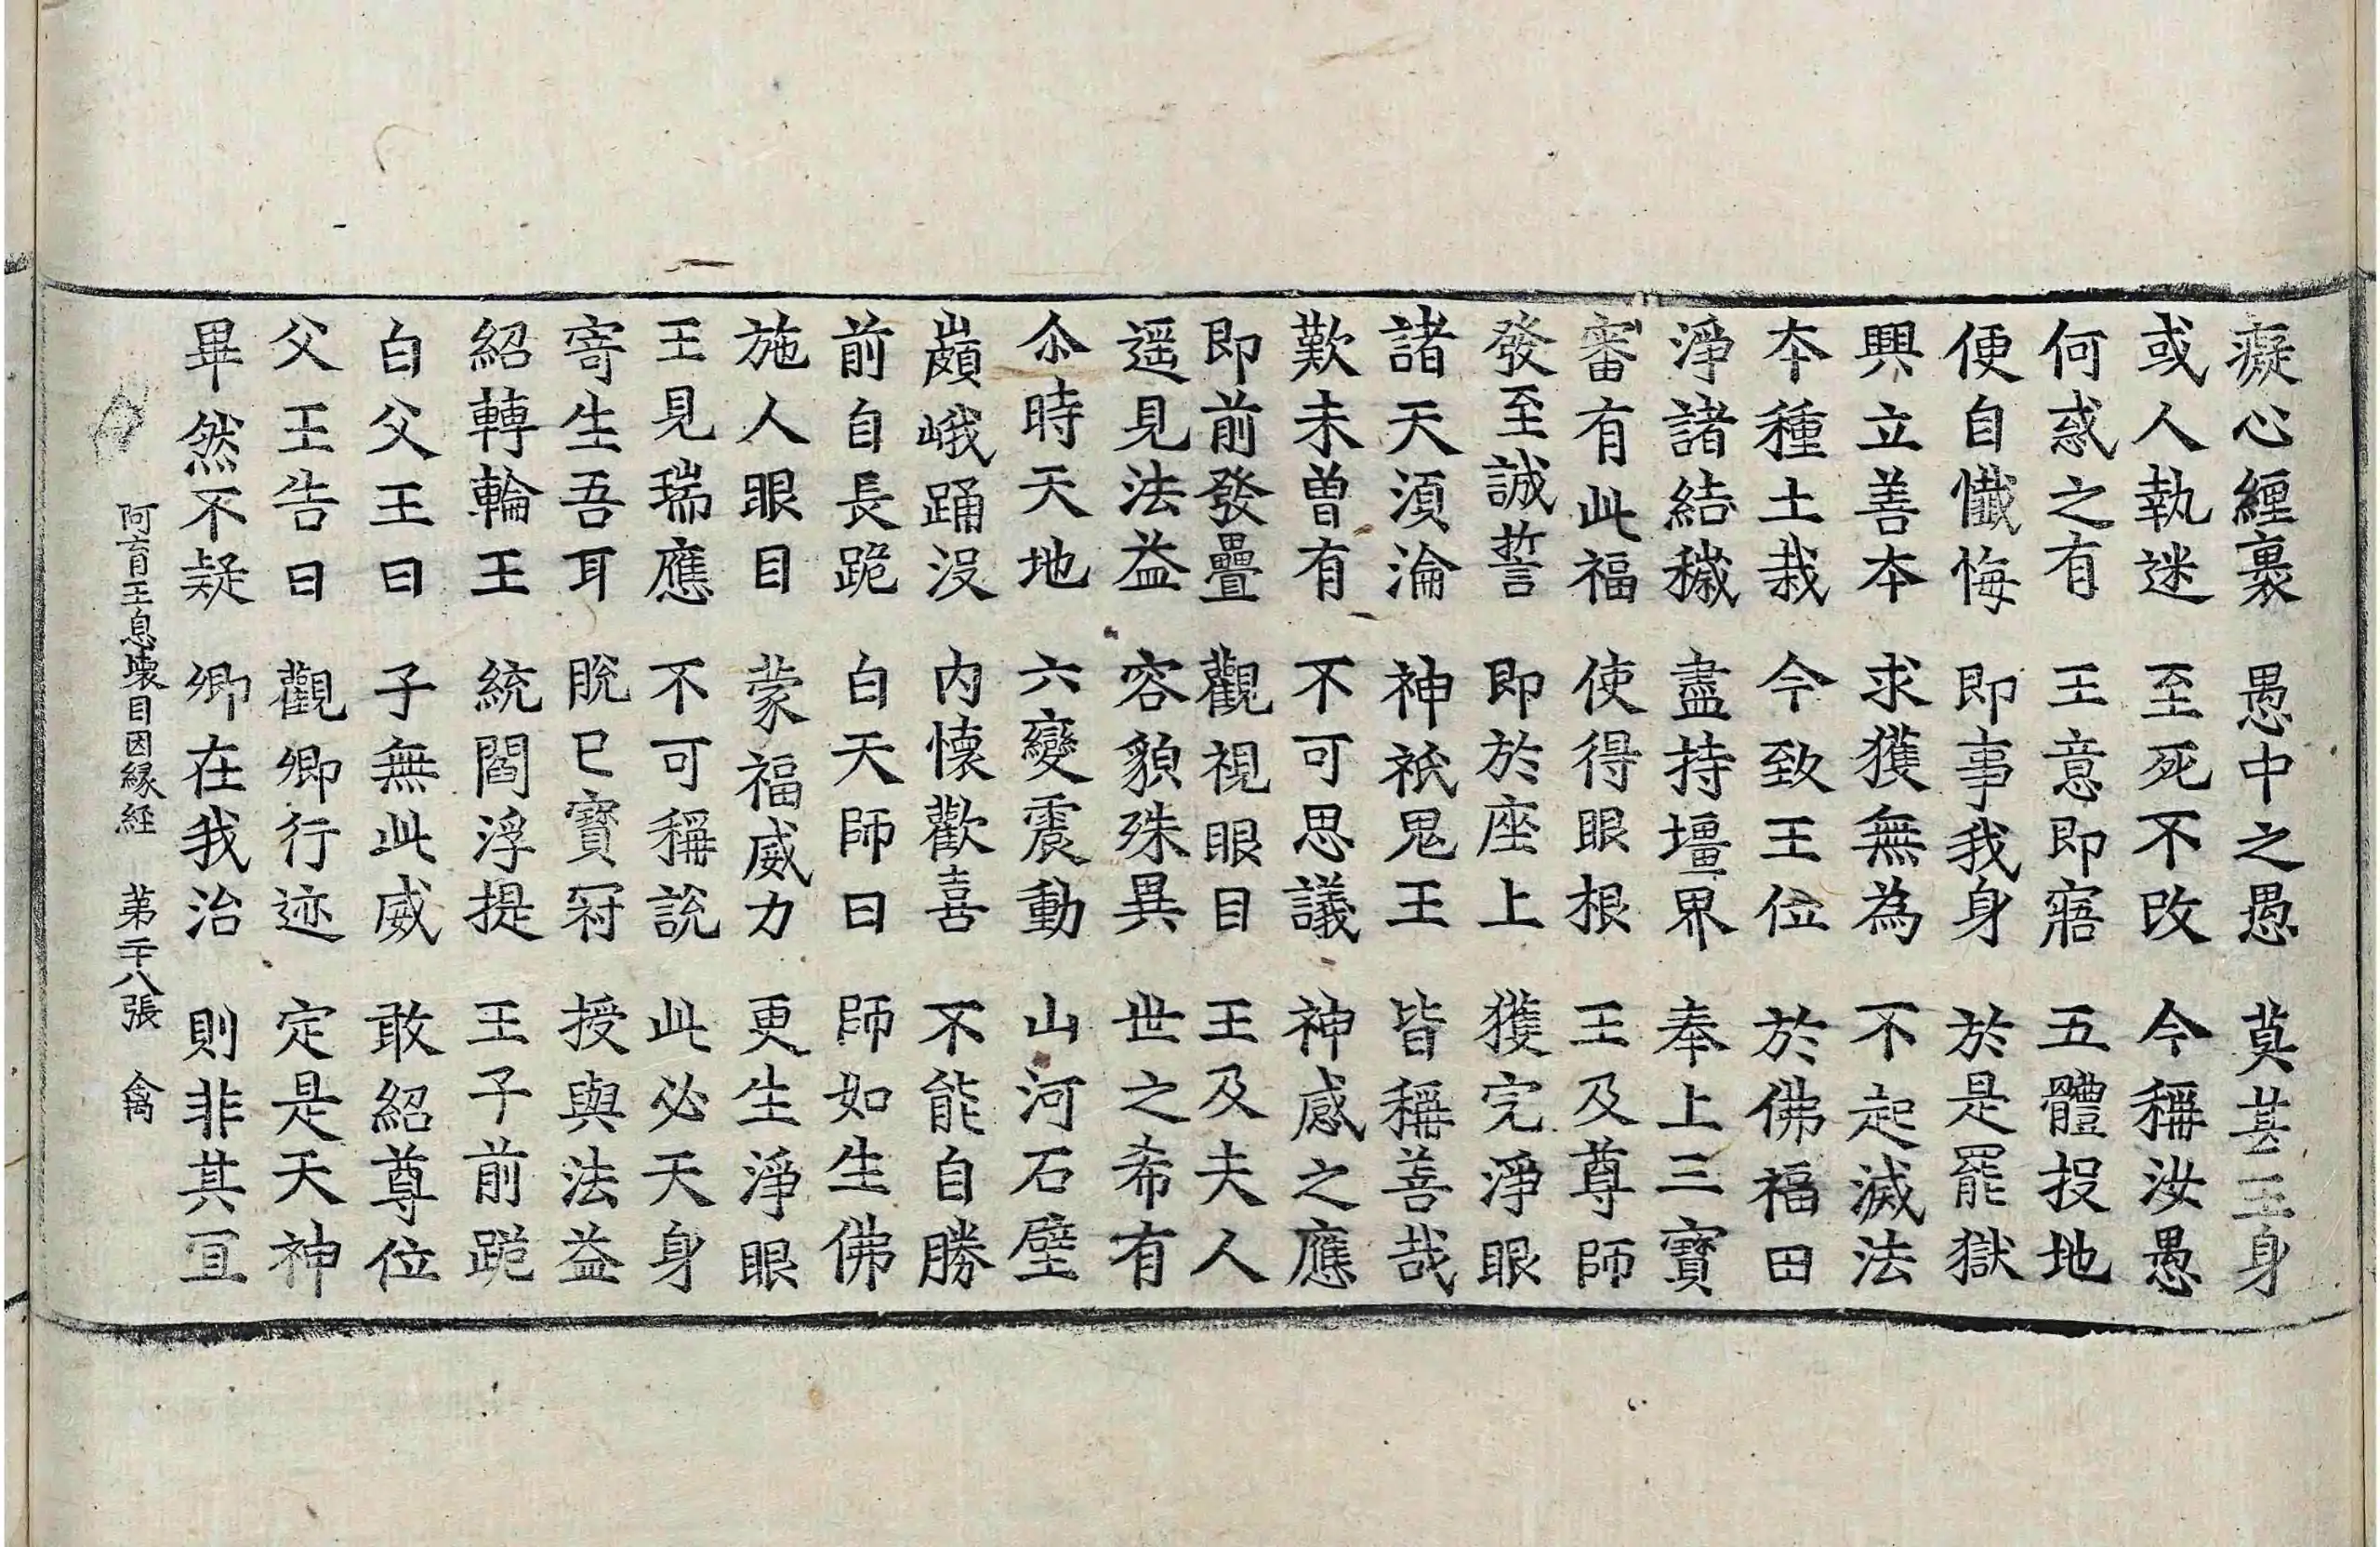 癡心纒裹 愚中之愚 莫甚王身
或人執迷 至死不改 今稱汝愚
何惑之有 王意即寤 五體投地
便自懺悔 即事我身 於是罷獄
興立善本 求獲無為 不起滅法
本種土栽 今致王位 於佛福田
淨諸結穢 盡持壃界 奉上三寶
審有此福 使得眼根 王及尊師
發至誠誓 即於座上 獲完淨眼
諸天湏淪 神祇鬼王 皆稱善哉
歎未曽有 不可思議 神感之應
即前發疊 觀視眼目 王及夫人
遥見法益 容貌殊異 世之希有
尒時天地 六變震動 山河石壁
巓峨踊没 内懷歡喜 不能自勝
前自長跪 白天師曰 師如生佛
施人眼目 蒙福威力 更生淨眼
王見瑞應 不可稱說 此必天身
寄生吾耳 脫已寶冠 授與法益
紹轉輪王 統閻浮提 王子前跪
白父王曰 子無此威 敢紹尊位
父王告曰 觀卿行迹 定是天神
畢然不疑 卿在我治 則非其冝
阿育王息壞目因緣経 苐二十八張 禽